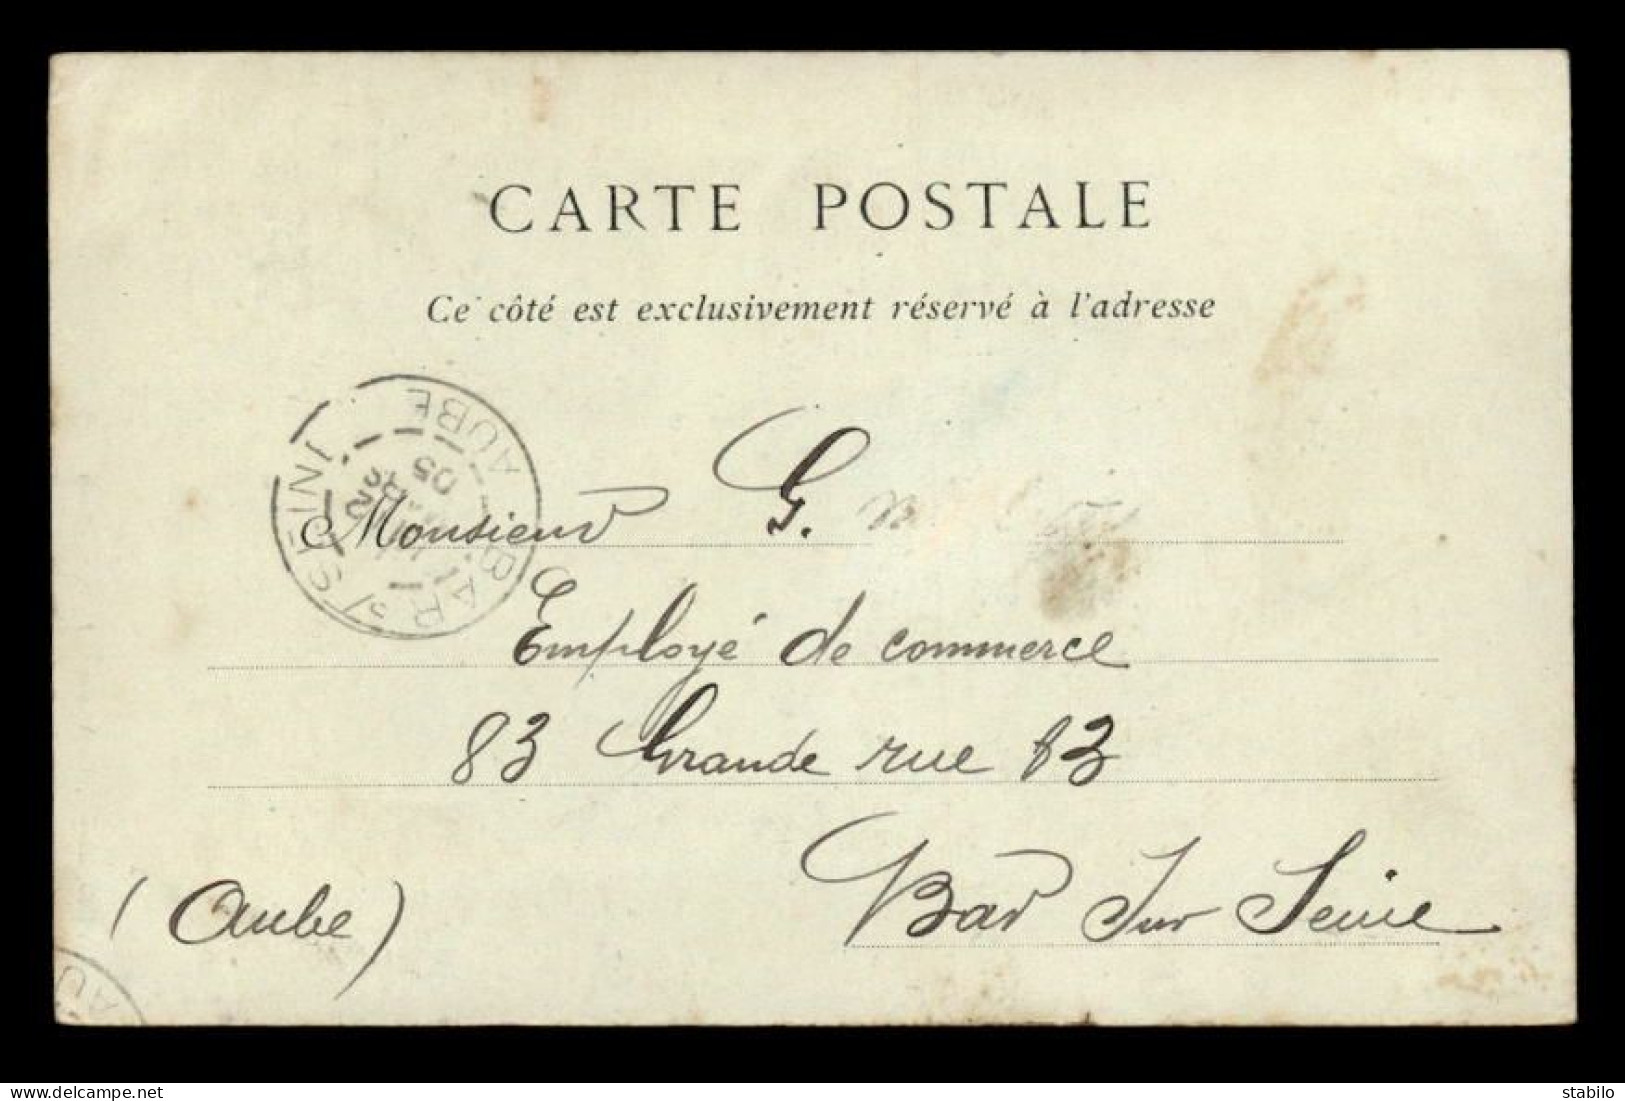 CARTE POSTALE
Ce côté est exclusivement réservé à l'adresse
BAR-S-SEINE AUBE
05
Monsieur G.
Employé de commerce
83 Grande rue 83
Bar Sur Seine
(Aube)
AU
delcampe.net
stabilo